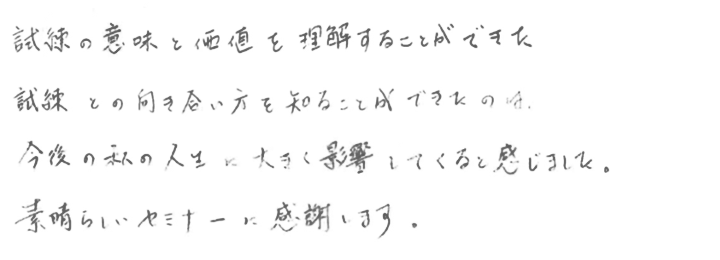 試練の意味と価値を理解することができた
試練との向き合い方を知ることができたのは、
今後の私の人生に大きく影響してくると感じました。
素晴らしいセミナーに感謝します。